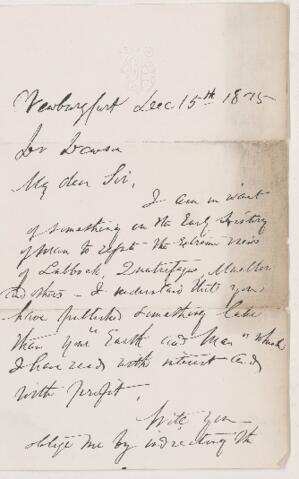 Newburyport Dec 15th 1875
Dr Dawson
My dear Sir,
I am in want
of something on the Early History
of man to refute the extreme views
of Lubbock, Quatrefages,
and others - I understand that you
have published something later
than your "Earth and Man" which
I have read with interest and
with profit.
Will you
oblige me by indicating the